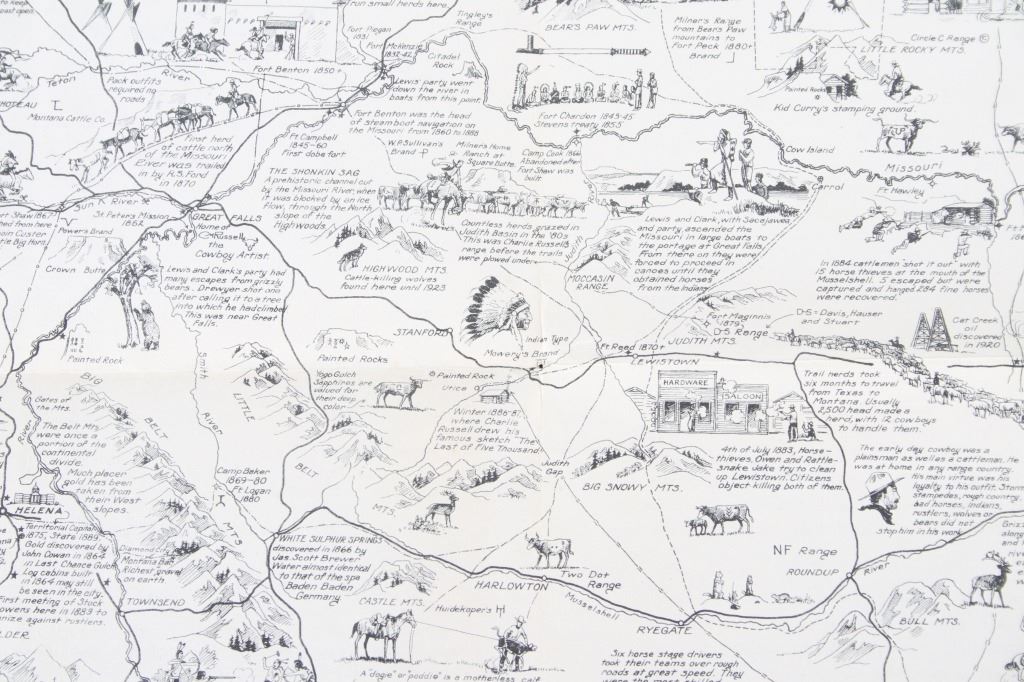 past open.
Trun small herds here.
Tingley's
Range
BEAR'S PAW MTS.
Milner's Range
from Bears Paw
mountains to
Fort Peck 1880+
Brand
Circle C Range
LITTLE ROCKY MTS.
Painted Rocks
Kid Curry's stamping ground.
Fort Piegan
1831
Fort McKenzie
1832-42
Citadel
Rock
Lewis' party went
down the river in
boats from this point.
Fort Benton 1850+
Teton
River
Pack outfits
required no
roads
CHOTEAU
Montana Cattle Co.
First herd
of cattle north
of the Missouri
River was trailed
in by R.S. Ford
in 1870
Fort Benton was the head
of steamboat navigation on
the Missouri from 1860 to 1888
Fort Chardon 1843-45
Stevens treaty 1855
Ft. Campbell
1845-60
First dobe fort
W.P. Sullivan's
Brand
Milner's Home
Ranch at
Square Butte.
Camp Cook 1866
Abandoned after
Fort Shaw was
built.
Cow Island
MISSOURI
Carrol
Ft. Hawley
THE SHONKIN SAG
A prehistoric channel cut
by the Missouri River, when
it was blocked by an ice
flow, through the North
slope of the
Highwoods.
Countless herds grazed in
Judith Basin in the '80s
This was Charlie Russell's
range before the trails
were plowed under.
HIGHWOOD MTS.
Cattle-killing wolves
found here until 1923
Judith
MOCCASIN
RANGE
Lewis and Clark, with Sacajawea
and party ascended the
Missouri in large boats to
the portage at Great Falls.
From there on they were
forced to proceed in
canoes until they
obtained horses
from the Indians
In 1884 cattlemen "shot it out" with
15 horse thieves at the mouth of the
Musselshell. 5 escaped but were
captured and hanged. 284 fine horses
were recovered.
Fort Shaw 1867
Sun River
St. Peters Mission
1862
GREAT FALLS
Home of
CM Russell
the
Cowboy Artist
Power's Brand
Crown Butte
Lewis and Clark's party had
many escapes from grizzly
bears. Drewyer shot one
after calling it to a tree
into which he had climbed
This was near Great
Falls.
Painted Rock
STANFORD
Painted Rocks
Indian Type
Mowery's Brand
Fort Maginnis
1879
D-S Range
JUDITH MTS.
D-S-Davis, Hauser
and Stuart
Cat Creek
oil
discovered
in 1920
Ft. Reed 1870+
LEWISTOWN
HARDWARE
SALOON
Trail herds took
six months to travel
from Texas to
Montana. Usually
2,500 head made a
herd, with 12 cowboys
to handle them.
Yogo Gulch
Sapphires are
valued for
their deep
color
Painted Rock
Utica
Winter 1886-87
where Charlie
Russell drew his
famous sketch "The
Last of Five Thousand."
BIG
BELT
MTS
Gates of
the Mts.
The Belt Mts
were once a
portion of the
continental
divide.
Much placer
gold has been
taken from
their West
slopes.
Smith
River
LITTLE
BELT
MTS
Camp Baker
1869-80
Ft Logan
1880
Judith
Gap
BIG SNOWY MTS.
4th of July 1883, Horse-
thieves, Owen and Rattle-
snake Jake try to clean
up Lewistown. Citizens
object killing both of them.
The early day cowboy was a
plainsman as well as a cattleman. He
was at home in any range country.
His main virtue was his
loyalty to his outfit. Storms
stampedes, rough country
bad horses, indians,
rustlers, wolves or
bears did not
stop him in his work
River
HELENA
Territorial Capital
1875, State 1889.
Gold discovered by
John Cowan in 1864
in Last Chance Gulch
Log cabins built
in 1864 may still
be seen in the city.
First meeting of Stock
Growers here in 1893 to
organize against rustlers.
Diamond City
Montana Bar
Richest gravel
on earth
TOWNSEND
WHITE SULPHUR SPRINGS
discovered in 1866 by
Jas. Scott Brewer
Water almost identical
to that of the spa
Baden Baden
Germany
CASTLE MTS.
Huidekoper's
HARLOWTON
Two Dot
Range
Musselshell
RYEGATE
NF Range
ROUNDUP
River
BULL MTS.
BOULDER
A "dogie" or "poddie" is a motherless calf
Six horse stage drivers
took their teams over rough
roads at great speed. They
were the most skilled